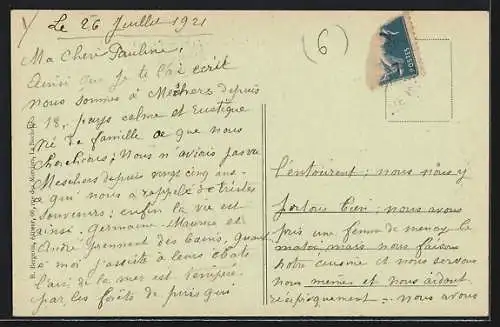 Le 26 Juillet 1921
(6)
Ma Cheri Pauline,
Ainsi que je te l'ai ecrit
nous sommes à Meschers depuis
18, pays calme et rustique
de famille ce que nous
cherchions; Nous n'avions pas vu
Meschers depuis vingt cinq ans
ce qui nous a rappelé de tristes
souvenirs; enfin la vie est
ainsi. Germaine Maurice et
André prennent des bains, quant
à moi j'assiste à leurs ébats
l'air de la mer est tempéré
par les forêts de pins qui
l'entourent; nous nous y
nous avons
pris une femme de menage la
matin mais nous faisons
notre cuisine et nous servons
nous mêmes et nous aidant
réciproquement — nous avons
POSTES